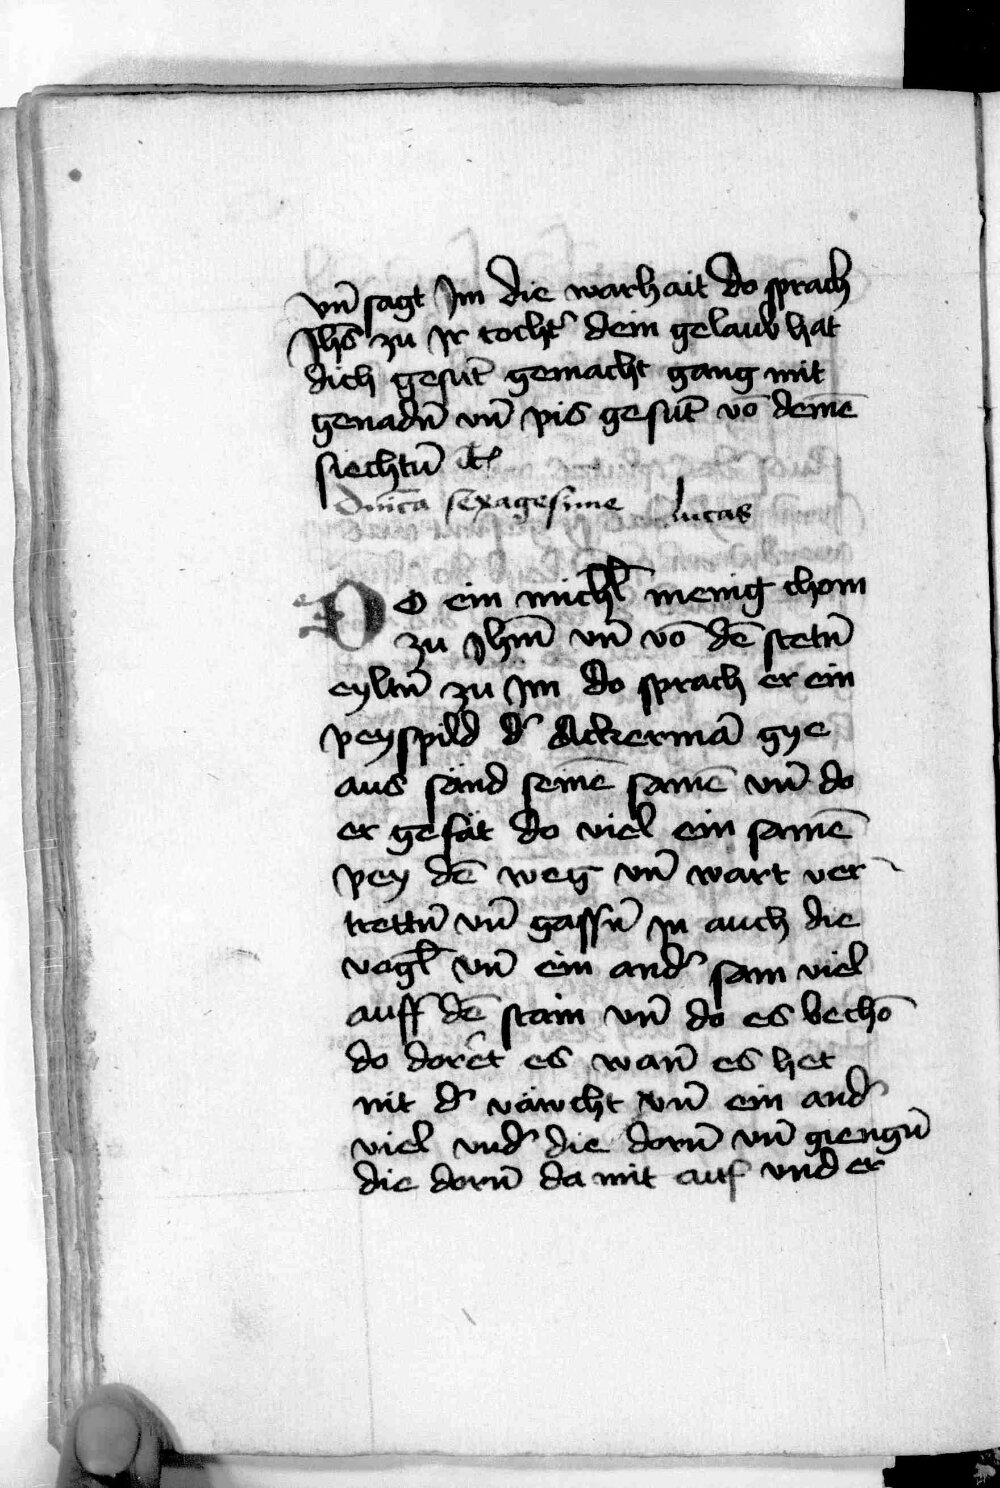 vn̄ sagt Jm die warhait do sprach
Jhs̄ zu Jr tocht' dein gelaub hat
dich gesūt gemacht gang mit
genadn̄ vn̄ pis gesūt vō deinē
siechtū ꝛc
Dnīca sexagesime Lucas
Do ein michl̄ menig chom
zu Jhm̄ vn̄ vō dē stetn̄
eyltn̄ zu Jm do sprach er ein
peyspild d' Ackermā gye
aus sänd seinē samē vn̄ do
er gesät do viel ein samē
pey dē weg vn̄ wart ver
trettn̄ vn̄ gassn̄ Jn auch die
vogl̄ vn̄ ein and' sam viel
auff dē stain vn̄ do es bechō
do doret es wan̄ es het
nit d' väwcht vn̄ ein and'
viel vnd' die dorn̄ vn̄ giengn̄
die dorn̄ da mit auf vnd er